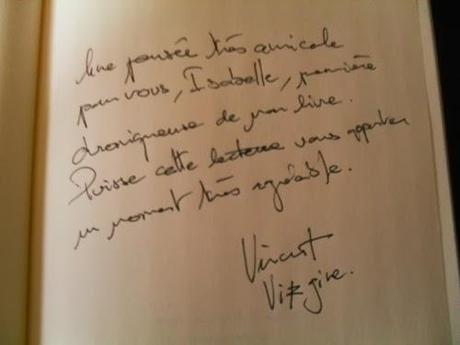 Une pensée très amicale
pour vous, Isabelle, première
chroniqueuse de mon livre.
Puisse cette lecture vous apporter
un moment très agréable.
Vincent